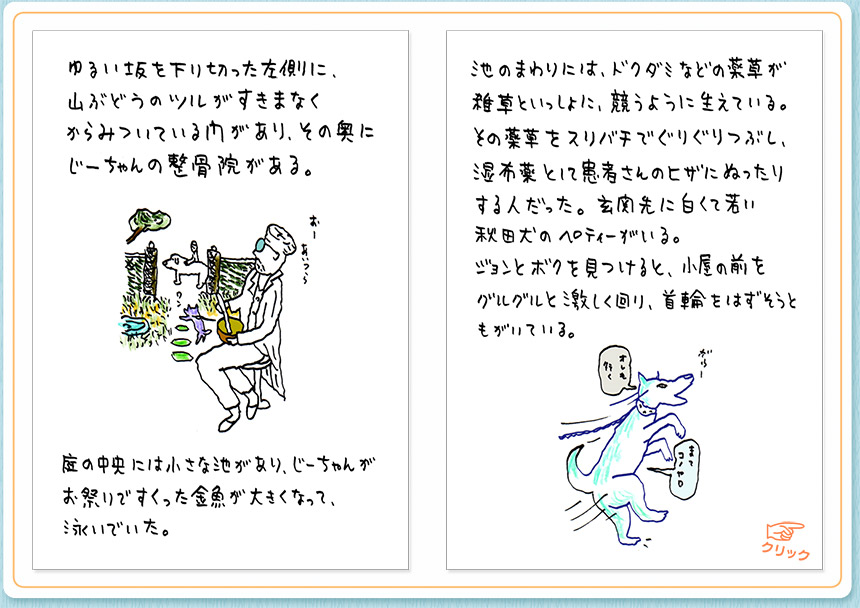 ゆるい坂を下り切った左側に、
山ぶどうのツルがすきまなく
からみついている門があり、その奥に
じーちゃんの整骨院がある。
おー
あいつら
ワン
庭の中央には小さな池があり、じーちゃんが
お祭りですくった金魚が大きくなって、
泳いでいた。
池のまわりには、ドクダミなどの薬草が
雑草といっしょに、競うように生えている。
その薬草をスリバチでぐりぐりつぶし、
湿布薬として患者さんのヒザにぬったり
する人だった。玄関先に白くて若い
秋田犬のペティーがいる。
ジョンとボクを見つけると、小屋の前を
グルグルと激しく回り、首輪をはずそうと
もがいている。
がらー
オレも
行く
まて
コノヤロ
クリック